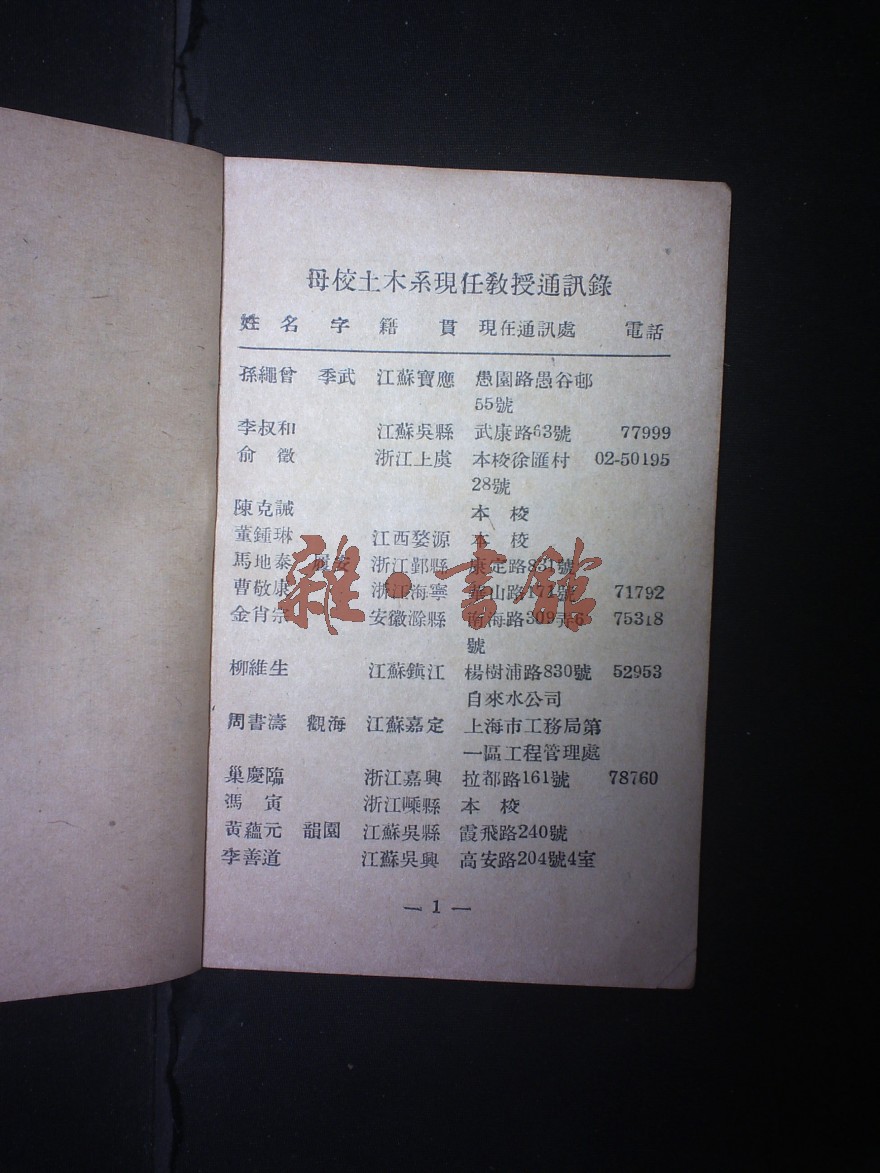 母校土木系現任教授通訊錄
姓名 字 籍貫 現任通訊處 電話
孫繩曾 季武 江蘇寶應 愚園路愚谷邨
55號
李叔和 江蘇吳縣 武康路63號 77999
俞徵 浙江上虞 本校徐匯村 02-50195
28號
陳克誠 本校
董鍾琳 江西婺源 本校
馬地泰 履安 浙江鄞縣 康定路831號
曹敬康 浙江海寧 華山路171號 71792
金肖宗 安徽滁縣 南海路309弄6 75318
號
柳維生 江蘇鎮江 楊樹浦路830號 52953
自來水公司
周書濤 觀海 江蘇嘉定 上海市工務局第
一區工程管理處
巢慶臨 浙江嘉興 拉都路161號 78760
馮寅 浙江嵊縣 本校
黃蘊元 韻園 江蘇吳縣 霞飛路240號
李善道 江蘇吳興 高安路204號4室
— 1 —
雜·書館